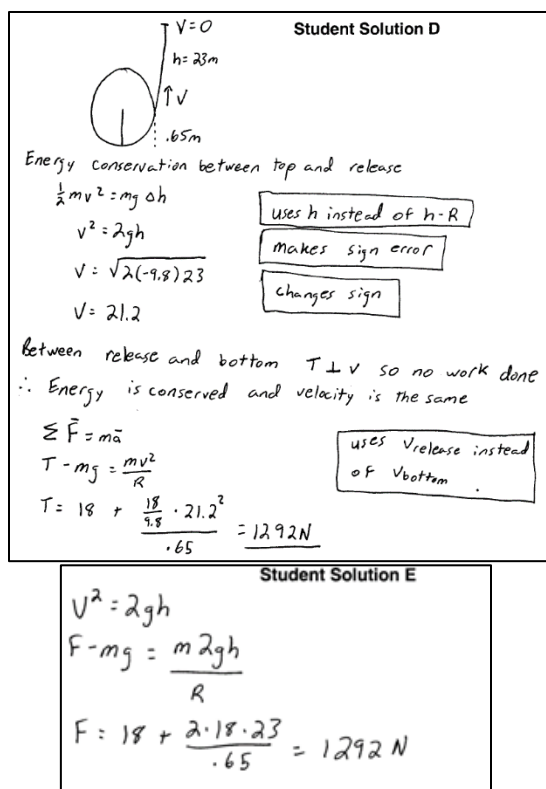 Student Solution D
V=0
h=23m
↑V
.65m
Energy conservation between top and release
½mv² = mg Δh
v² = 2gh
V = √2(-9.8)23
V = 21.2
uses h instead of h-R
makes sign error
changes sign
Between release and bottom T ⊥ v so no work done
∴ Energy is conserved and velocity is the same
Σ F̄ = mā
T - mg = mv²/R
T = 18 + 18/9.8 · 21.2² / .65 = 1292N
uses Vrelease instead
of Vbottom .
Student Solution E
V² = 2gh
F - mg = m2gh/R
F = 18 + 2·18·23/.65 = 1292 N